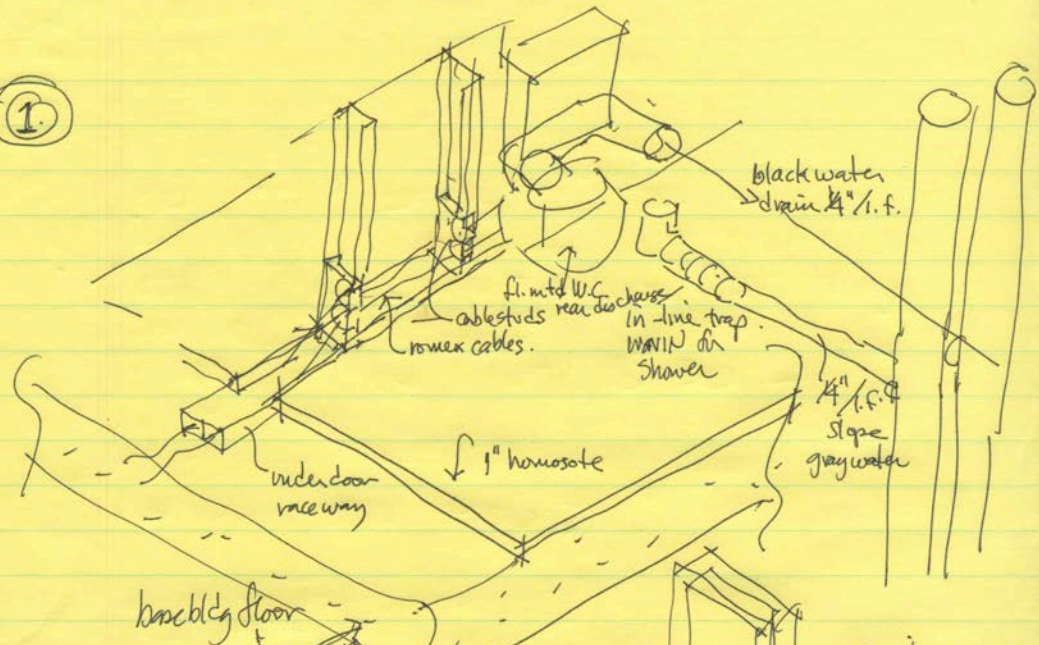 1.
blackwater
drain 1/4"/l.f.
fl. mtd W.C.
rear discharge
cablestuds
romex cables.
in-line trap.
for
shower
1/4"/l.f.
slope
graywater
1" homosote
underdoor
raceway
base bldg floor